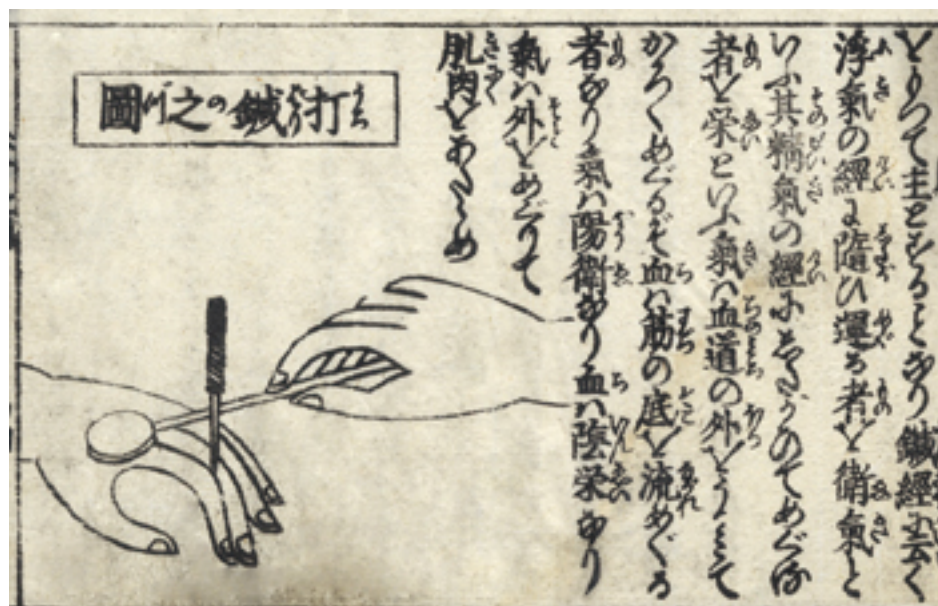 をもつて主とすることなり 鍼經に云く
浮氣の經に隨ひ運る者を衛氣と
いふ其精氣の經にしたがひてめぐる
者を栄といふ氣ハ血道の外を
かろくめぐるぞ血ハ筋の底を流めぐる
者なり氣ハ陽衛なり血ハ陰栄なり
氣ハ外をめぐりて
肌肉をあたゝめ
打鍼之圖